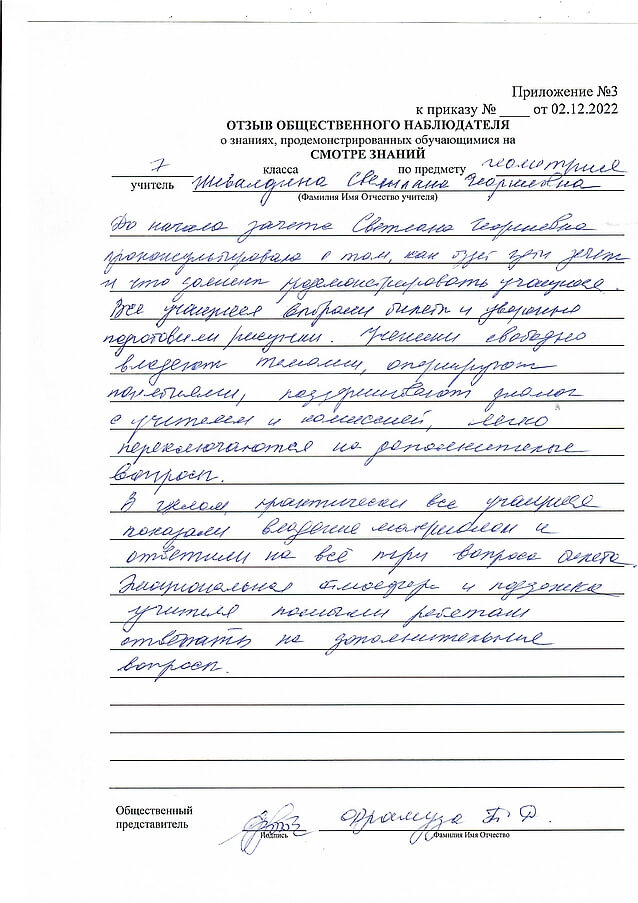 Приложение №3
к приказу № ____ от 02.12.2022
ОТЗЫВ ОБЩЕСТВЕННОГО НАБЛЮДАТЕЛЯ
о знаниях, продемонстрированных обучающимися на
СМОТРЕ ЗНАНИЙ
7 класса по предмету геометрия
учитель Шевалдина Светлана Георгиевна
(Фамилия Имя Отчество учителя)
До начала зачета Светлана Георгиевна
проконсультировала о том, как будет идти зачет
и что должен продемонстрировать учащиеся.
Все учащиеся выбрали билеты и уверенно
подготовили рисунки. Ученики свободно
владеют темами, оперируют
понятиями, поддерживают диалог
с учителем и комиссией, легко
переключаются на дополнительные
вопросы.
В целом, практически все учащиеся
показали владение материалом и
ответили на все три вопроса билета.
Эмоциональная атмосфера и поддержка
учителя помогали ребятам
отвечать на дополнительные
вопросы.
Общественный
представитель Фрамуза Т. Ф.
Подпись Фамилия Имя Отчество